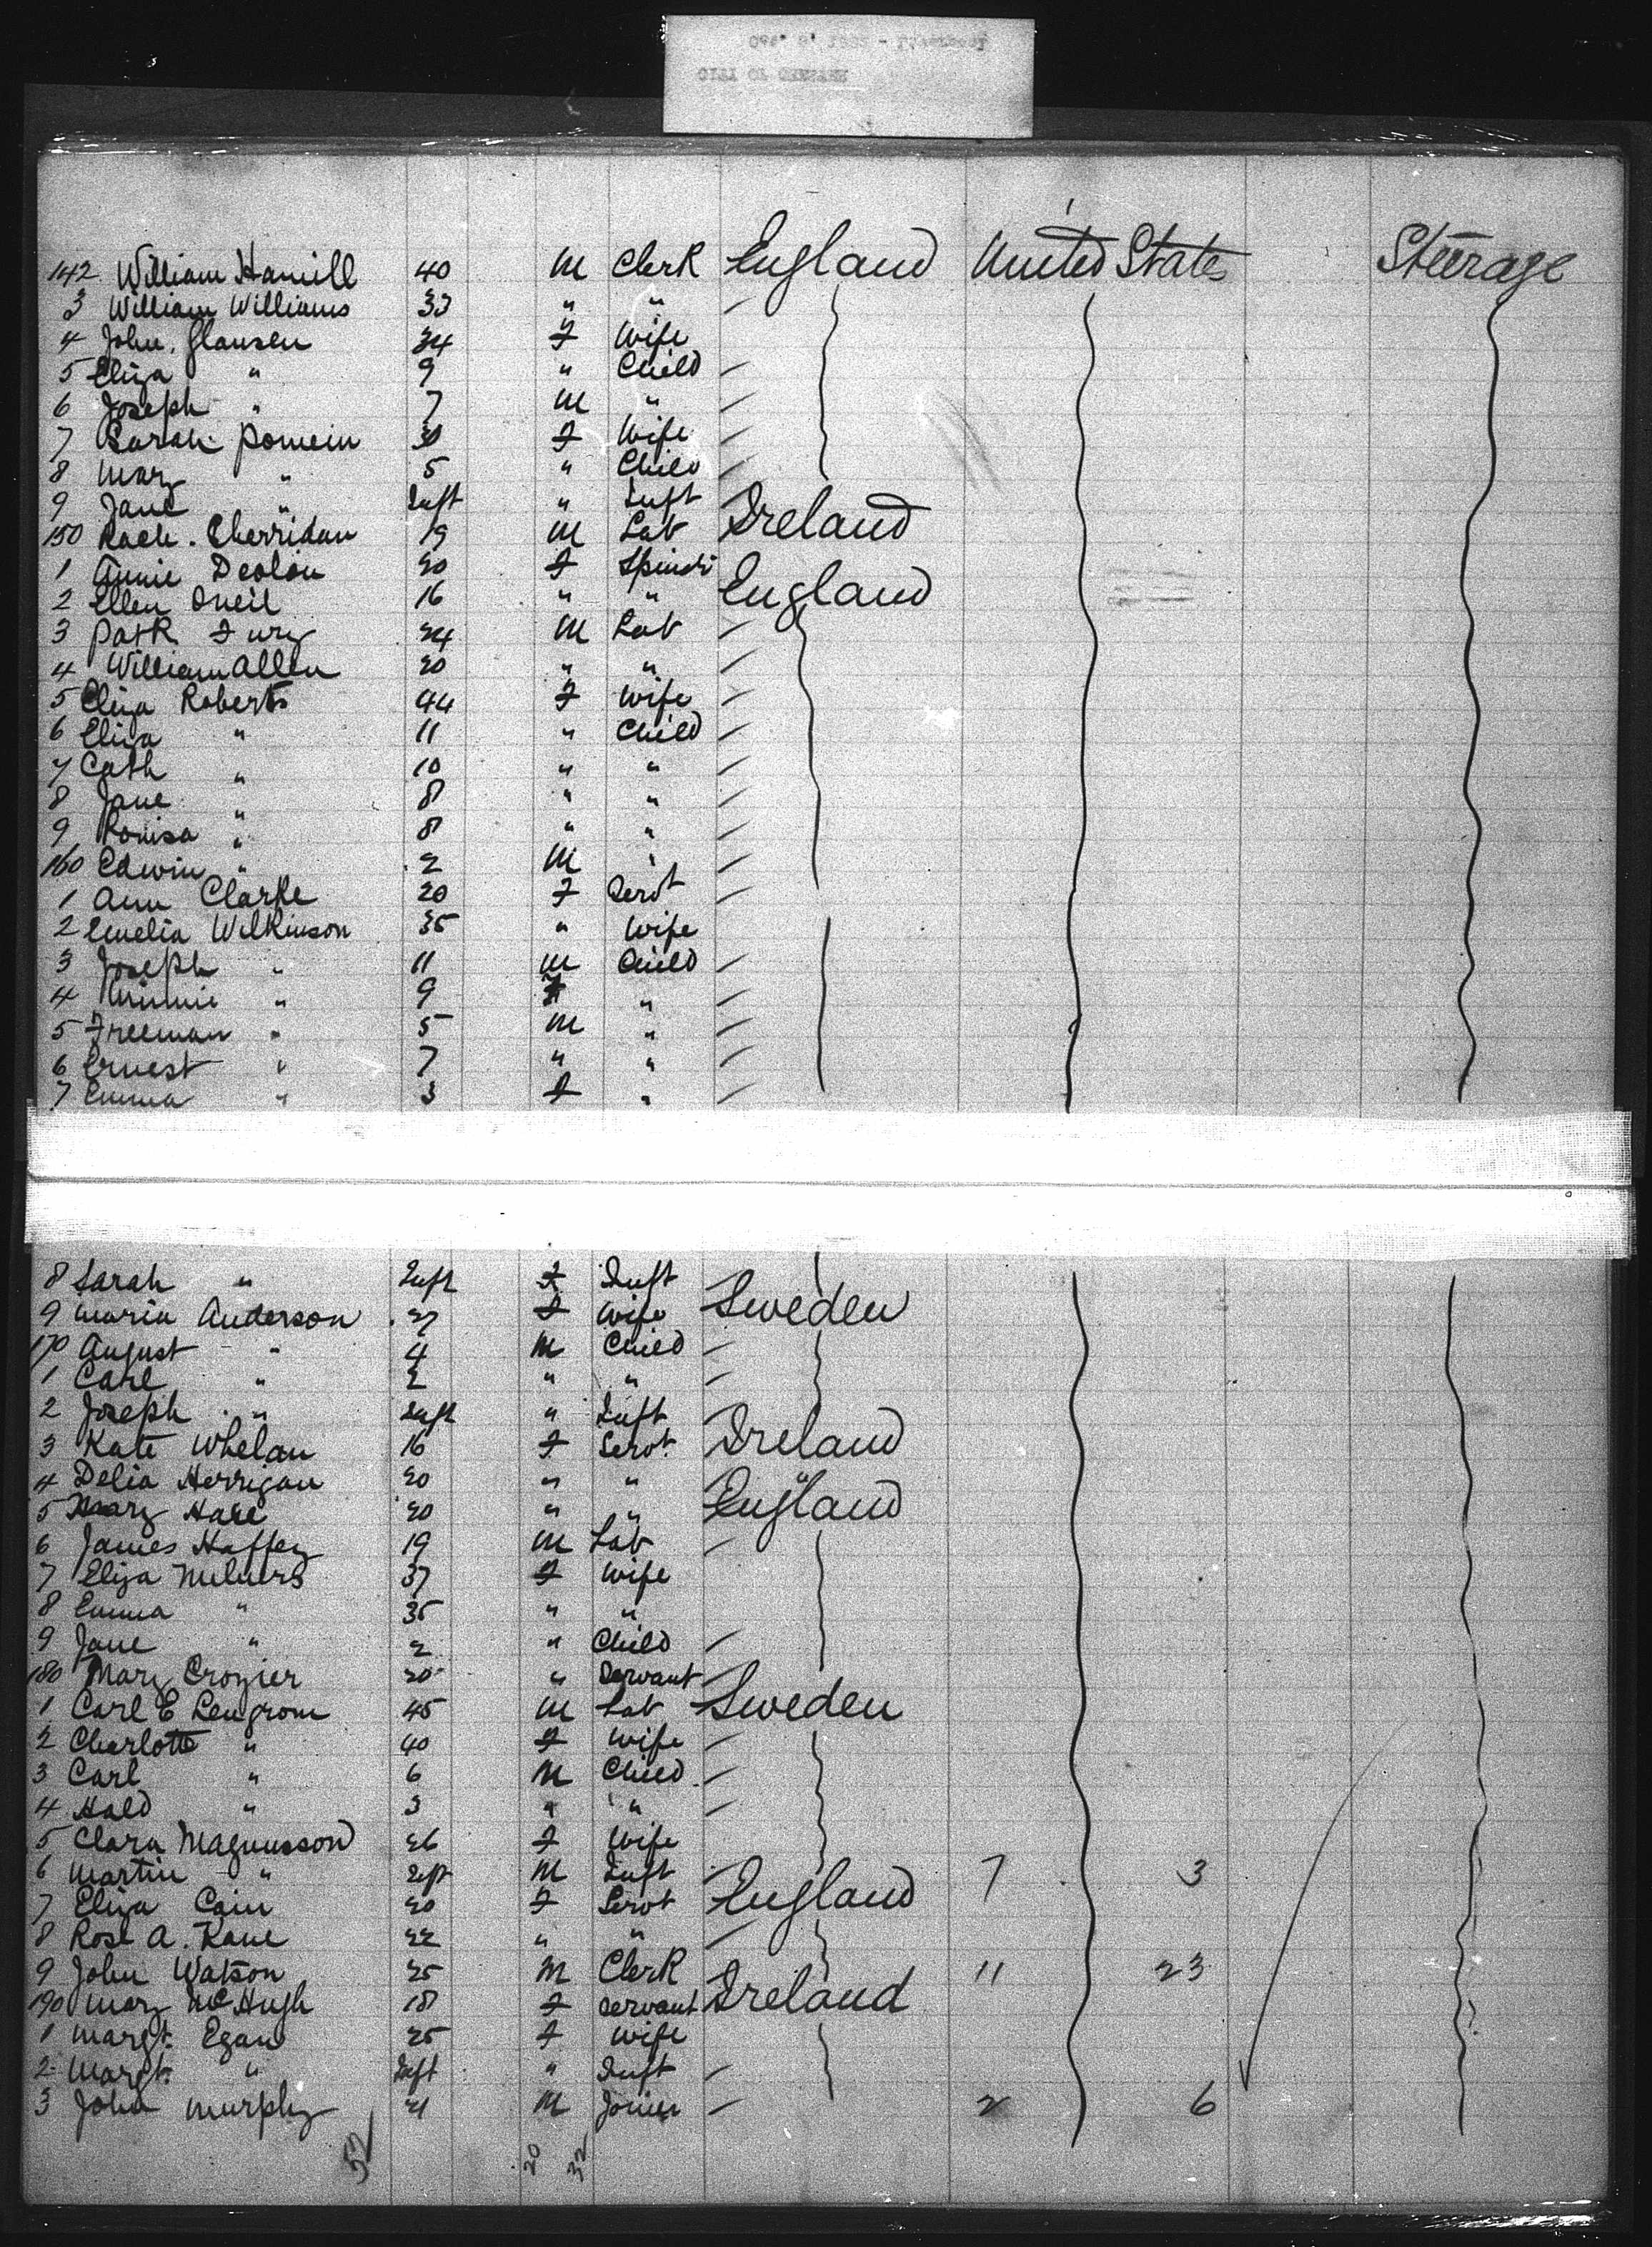 142 William Hamill 40 M Clerk England United States Steerage
3 William Williams 33 " "
4 John. Glansen 34 F Wife
5 Eliza " 9 " Child
6 Joseph " 7 M "
7 Sarah 30 F Wife
8 Mary " 5 " Child
9 Jane " Inft " Inft
150 . Cherridan 19 M Lab Ireland
1 Annie 20 F
2 Ellen Oneil 16 " " England
3 Patk Fury 24 M Lab
4 William Allen 20 " "
5 Eliza Roberts 44 F Wife
6 Eliza " 11 " Child
7 Cath " 10 " "
8 Jane " 8 " "
9 Louisa " 8 " "
160 Edwin " 2 M "
1 Ann Clarke 20 F Servt
2 Emelia Wilkinson 35 " Wife
3 Joseph " 11 M Child
4 Minnie " 9 F "
5 Freeman " 5 M "
6 Ernest " 7 " "
7 Emma " 3 F "
8 Sarah " Inft F Inft
9 Maria Anderson 27 F Wife Sweden
170 August " 4 M Child
1 Carl " 2 " "
2 Joseph " Inft " Inft
3 Kate Whelan 16 F Servt Ireland
4 Delia Herrigan 20 " " "
5 Mary Hare 20 " " England
6 James Haffey 19 M Lab
7 Eliza 37 F Wife
8 Emma " 35 " "
9 Jane " 2 " Child
180 Mary Crozier 20 " Servant
1 Carl E Lengrom 45 M Lab Sweden
2 Charlotte " 40 F Wife
3 Carl " 6 M Child
4 Hald " 3 " "
5 Clara Magnusson 26 F Wife
6 Martin " Inft M Inft 7 3
7 Eliza Cain 20 F Servt England
8 Rose A. Kane 22 " "
9 John Watson 25 M Clerk 11 23
190 Mary McHugh 18 F Servant Ireland
1 Margt. Egan 25 F Wife
2 Margt. " Inft " Inft
3 John Murphy 21 M Joiner 2 6
52 20 32